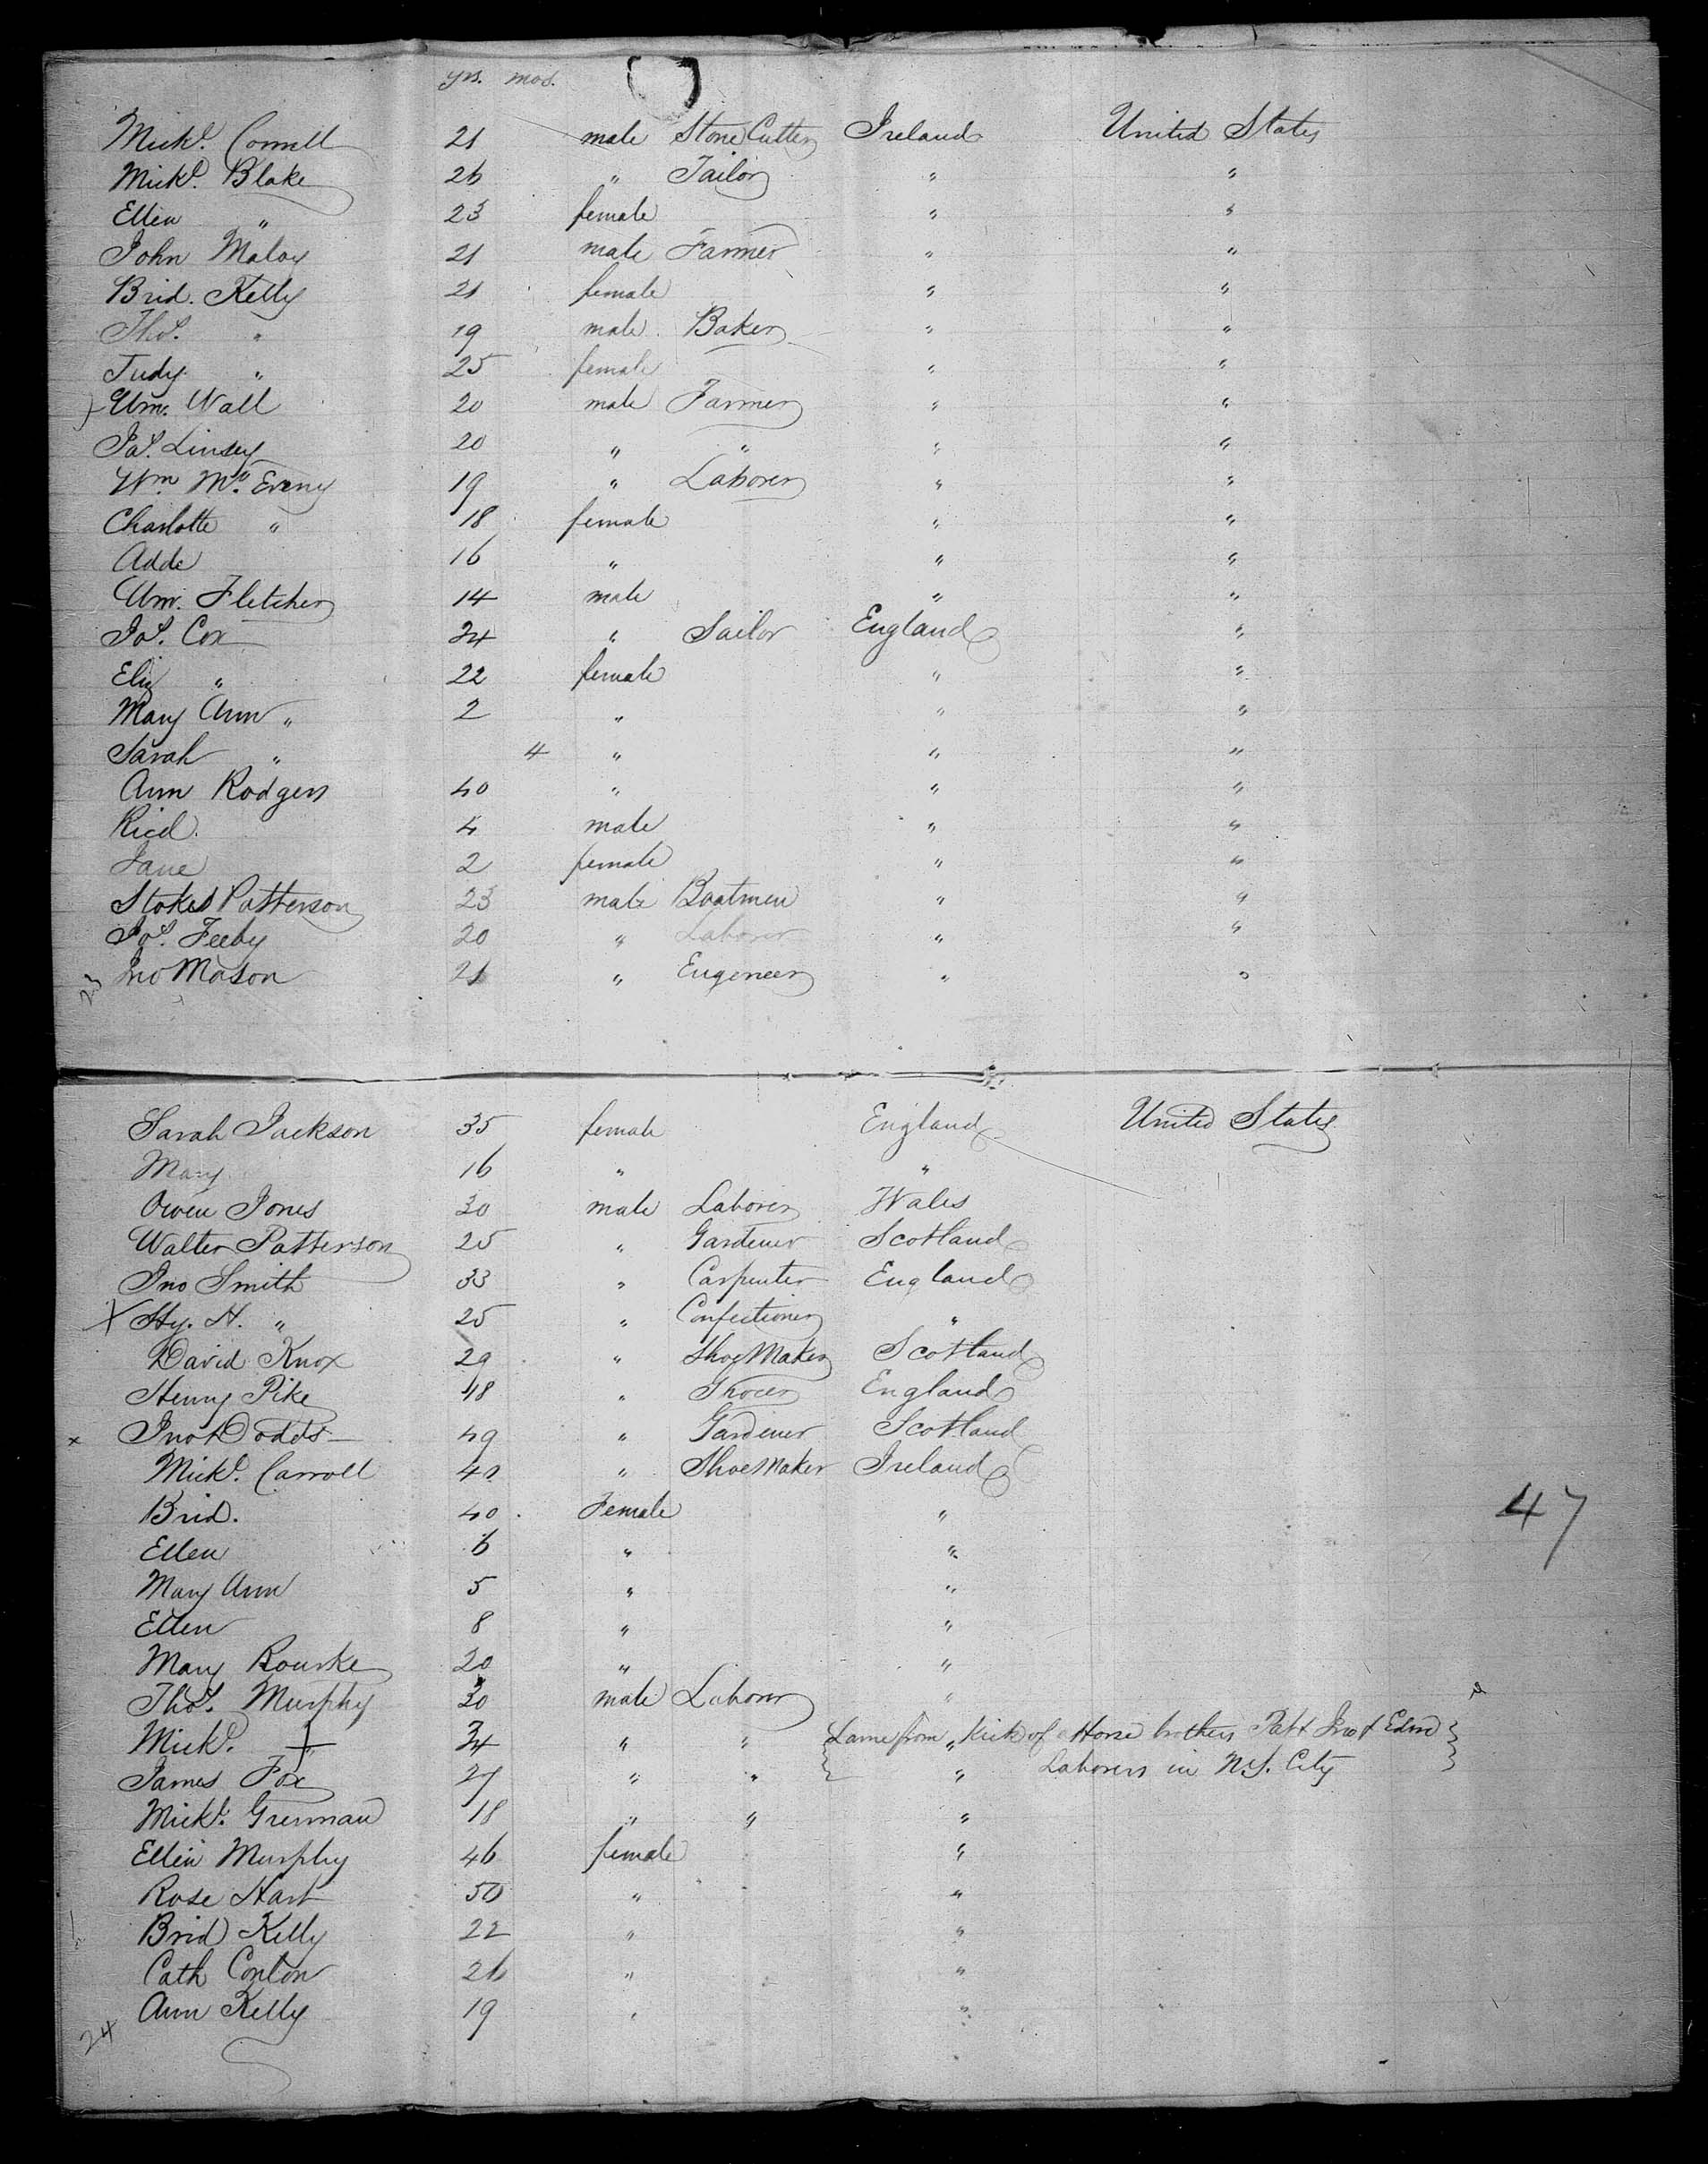 yrs. mos.
Mich.l Connell 21 male Stone Cutter Ireland United States
Mich.l Blake 26 " Tailor " "
Ellen " 23 female " "
John Maloy 21 male Farmer " "
Brid. Kelly 21 female " "
Tho.s " 19 male Baker " "
Judy " 25 female " "
Wm. Wall 20 male Farmer " "
Ja.s Linsey 20 " " " "
Wm Mc. Eveny 19 " Laborer " "
Charlotte " 18 female " "
Adde 16 " " "
Wm. Fletcher 14 male " "
Jo.s Cox 24 " Sailor England "
Eliz " 22 female " "
Mary Ann " 2 " " "
Sarah " 4 " " "
Ann Rodgers 40 " " "
Ricd. 4 male " "
Jane 2 female " "
Stokes Patterson 23 male Boatmen " "
Jo.s Feeby 20 " Laborer " "
23 Jno Mason 21 " Engeneer " "
Sarah Jackson 35 female England United States
Mary 16 " "
Owen Jones 30 male Laborer Wales
Walter Patterson 25 " Gardener Scotland
Jno Smith 33 " Carpenter England
X Hy. H. " 25 " Confectioner "
David Knox 29 " ShoeMaker Scotland
Henry Pike 48 " Grocer England
x Jno Dodds 49 " Gardener Scotland
Mick.l Carroll 40 " ShoeMaker Ireland
Brid. 40 Female "
Ellen 6 " "
Mary Ann 5 " "
Ellen 8 " "
Mary Rourke 20 " "
Tho.s Murphy 30 male Laborer "
Mick.l " 34 " " Lame from " Kick of Horse brothers Pat & Jno & Edm
James Fox 27 " " " Laborers in N.Y. City
Mick.l Grennan 18 " " "
Ellen Murphy 46 female "
Rose Hart 50 " "
Brid Kelly 22 " "
Cath Conlon 26 " "
24 Ann Kelly 19 " "
47